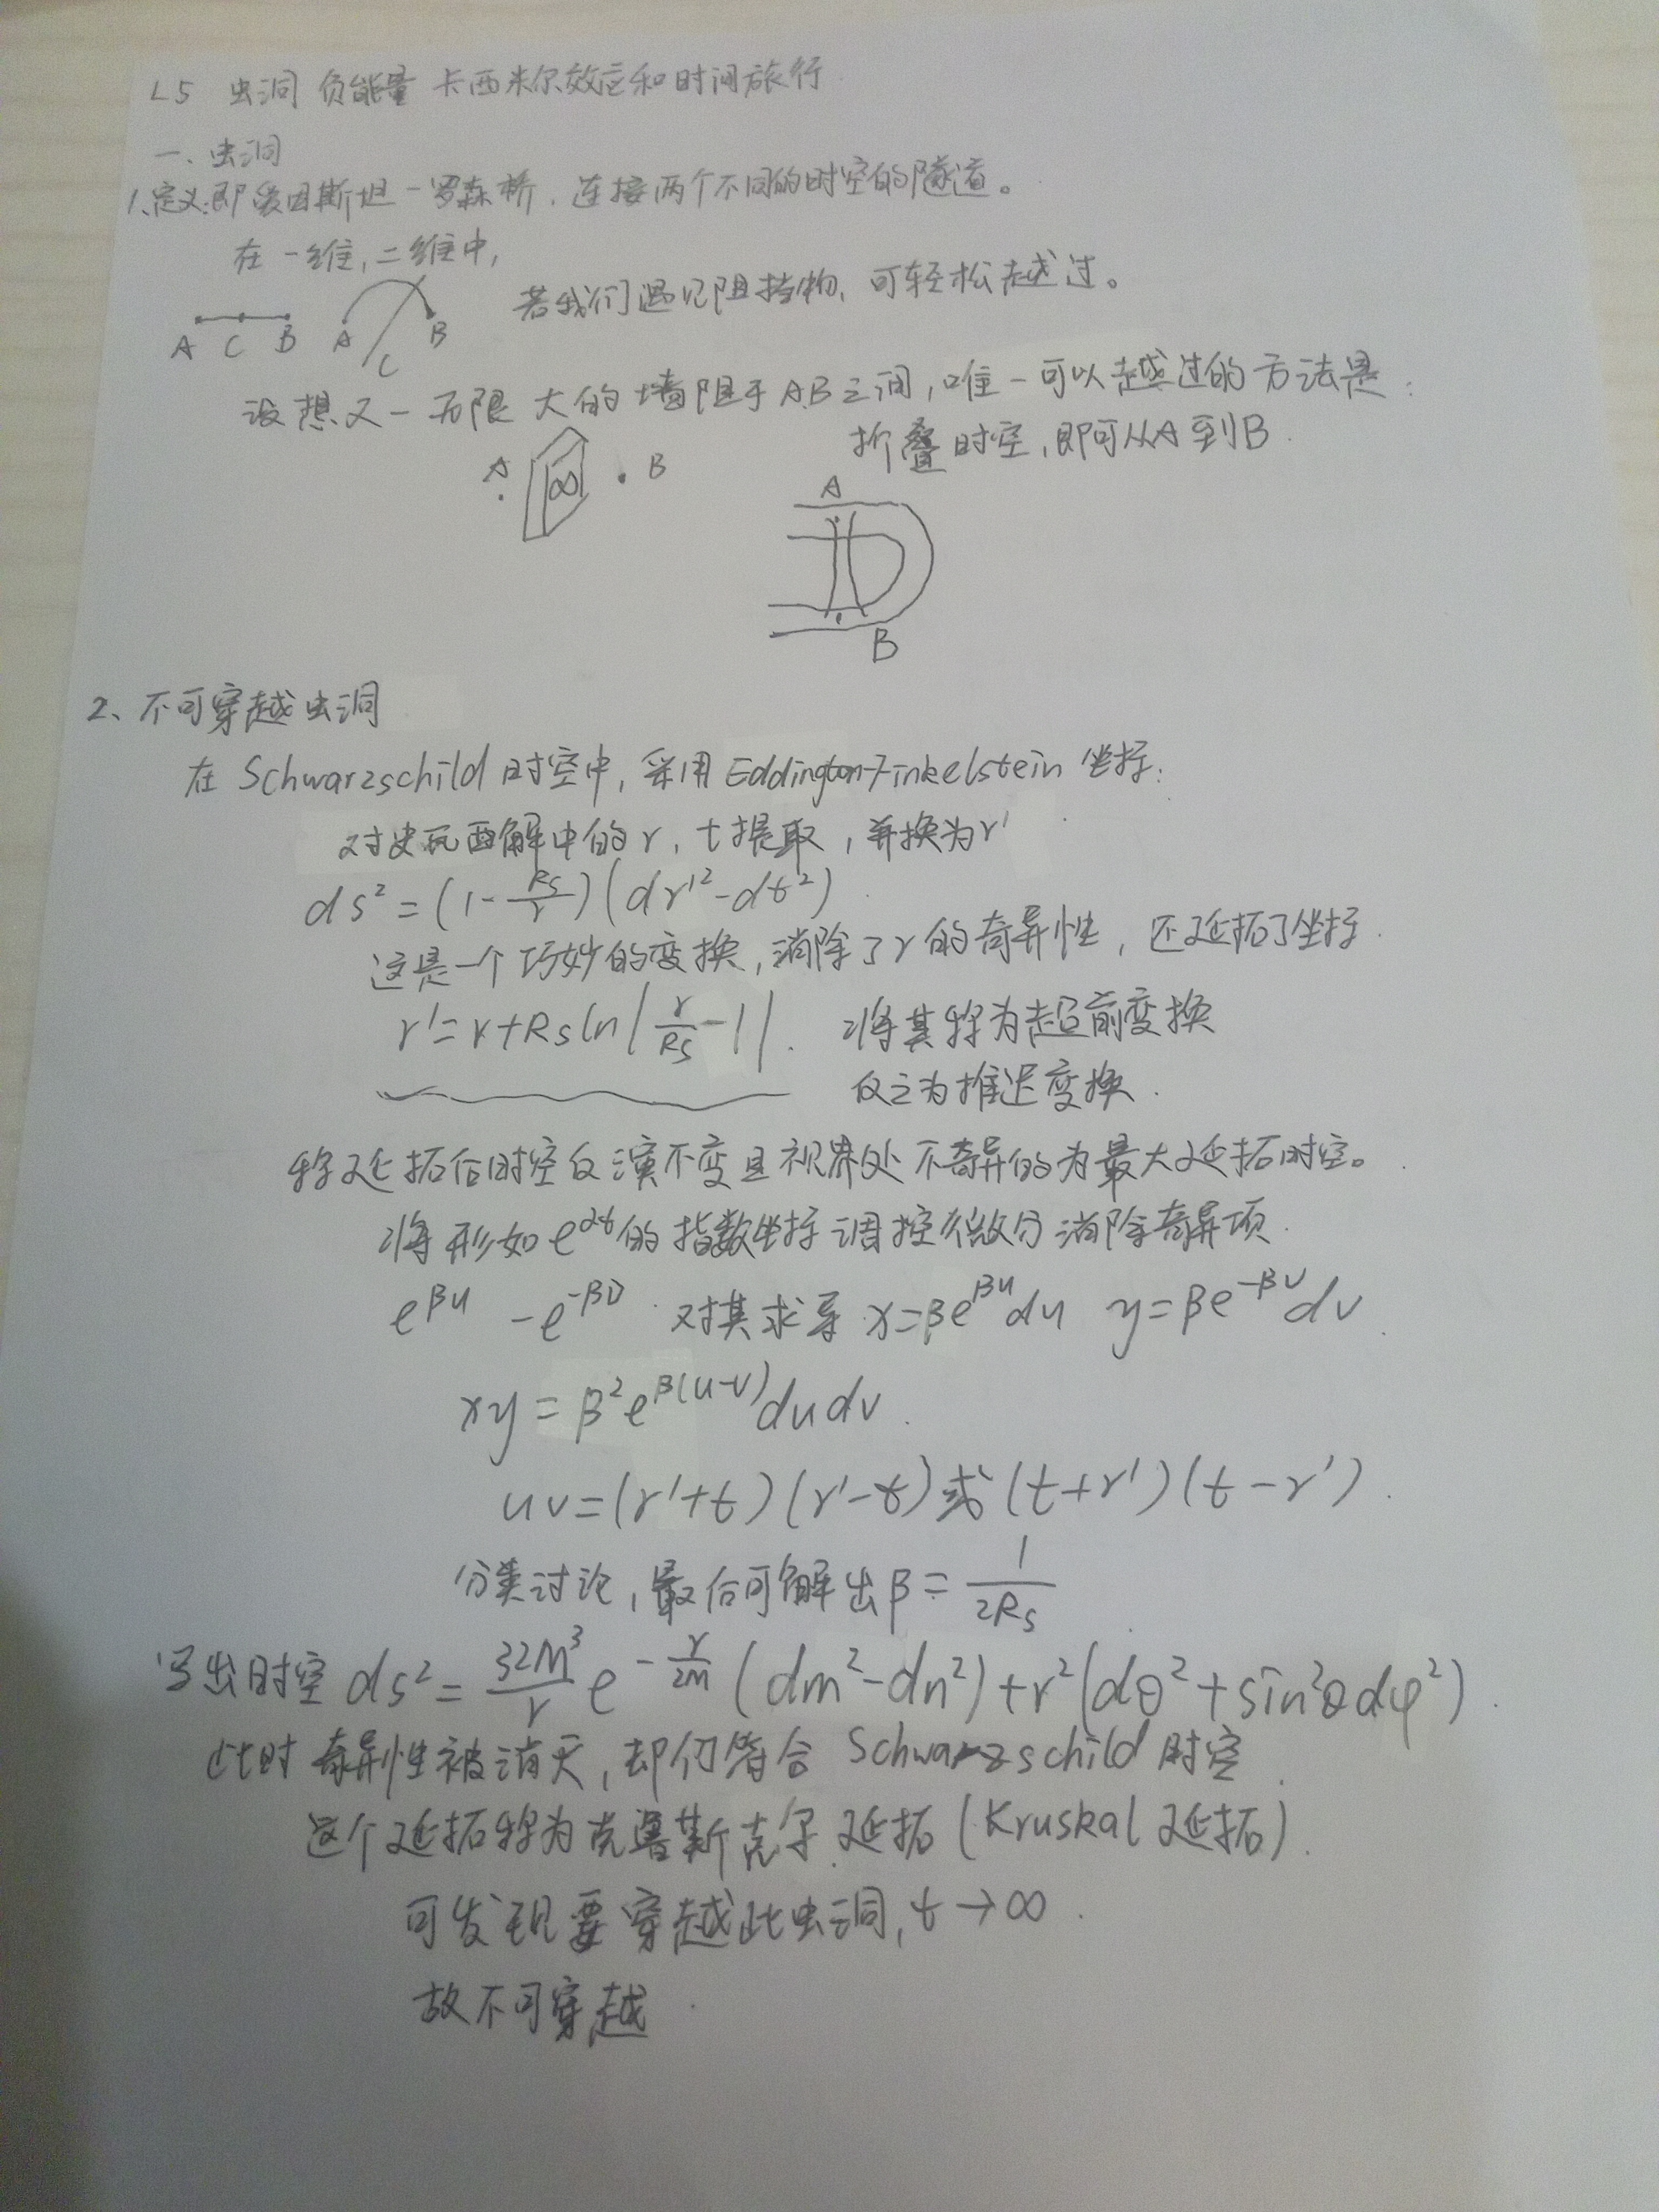 L5 虫洞 负能量 卡西米尔效应和时间旅行
一、虫洞
1、定义:即爱因斯坦-罗森桥,连接两个不同的时空的隧道。
在一维,二维中,
若我们遇见阻挡物,可轻松越过。
A C B A C B
设想又一无限大的墙阻于AB之间,唯一可以越过的方法是:
折叠时空,即可从A到B.
A ∞ B
A
B
2、不可穿越虫洞
在 Schwarzschild 时空中,采用 Eddington-Finkelstein 坐标:
对史瓦西解中的r,t提取,并换为r'
ds²=(1-Rs/r)(dr'²-dt²)
这是一个巧妙的变换,消除了r的奇异性,还延拓了坐标.
r'=r+Rs ln|r/Rs-1|. 将其称为超前变换
反之为推迟变换.
称延拓后时空反演不变且视界处不奇异的为最大延拓时空。
将形如e^{αt}的指数坐标调控微分消除奇异项.
e^{βu} -e^{-βv} 对其求导 x=βe^{βu}du y=βe^{-βv}dv.
xy=β²e^{β(u-v)}dudv.
uv=(r'+t)(r'-t)或(t+r')(t-r').
分类讨论,最后可解出β=1/2Rs.
写出时空 ds²=32M³/r e^{-r/2M}(dm²-dn²)+r²(dθ²+sin²θdφ²).
此时奇异性被消灭,却仍符合 Schwarzschild 时空.
这个延拓称为克鲁斯克尔延拓(Kruskal 延拓).
可发现要穿越此虫洞,t→∞.
故不可穿越.